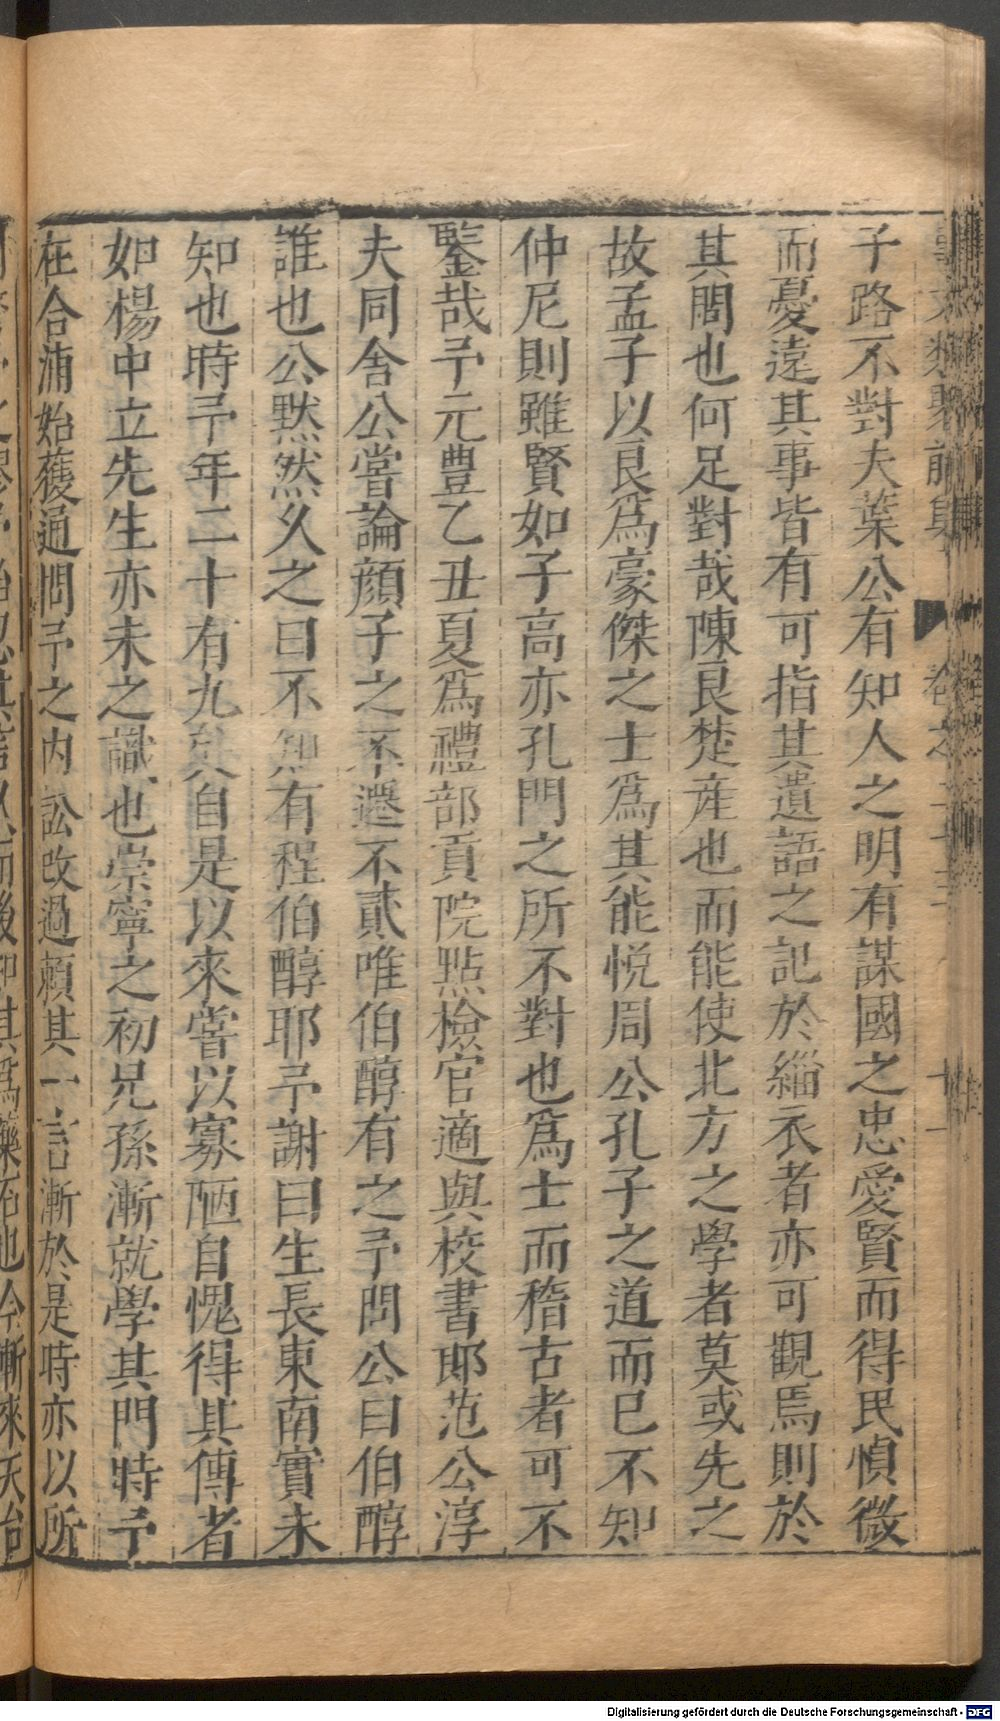 事文類聚前集 卷之二十三 十一
子路不對夫葉公有知人之明有謀國之忠愛賢而得民慎微
而憂遠其事皆有可指其遺語之記於緇衣者亦可觀焉則於
其問也何足對哉陳良楚産也而能使北方之學者莫或先之
故孟子以良爲豪傑之士爲其能悅周公孔子之道而已不知
仲尼則雖賢如子高亦孔門之所不對也爲士而稽古者可不
鑒哉予元豊乙丑夏爲禮部貢院點檢官適與校書郎范公淳
夫同舍公嘗論顔子之不遷不貳唯伯醇有之予問公曰伯醇
誰也公默然久之曰不知有程伯醇耶予謝曰生長東南實未
知也時予年二十有九矣自是以來嘗以寡陋自愧得其傳者
如楊中立先生亦未之識也崇寧之初兄孫漸就學其門時予
在合浦始獲通問予之内訟改過賴其一言漸於是時亦以所
Digitalisierung gefördert durch die Deutsche Forschungsgemeinschaft - DFG